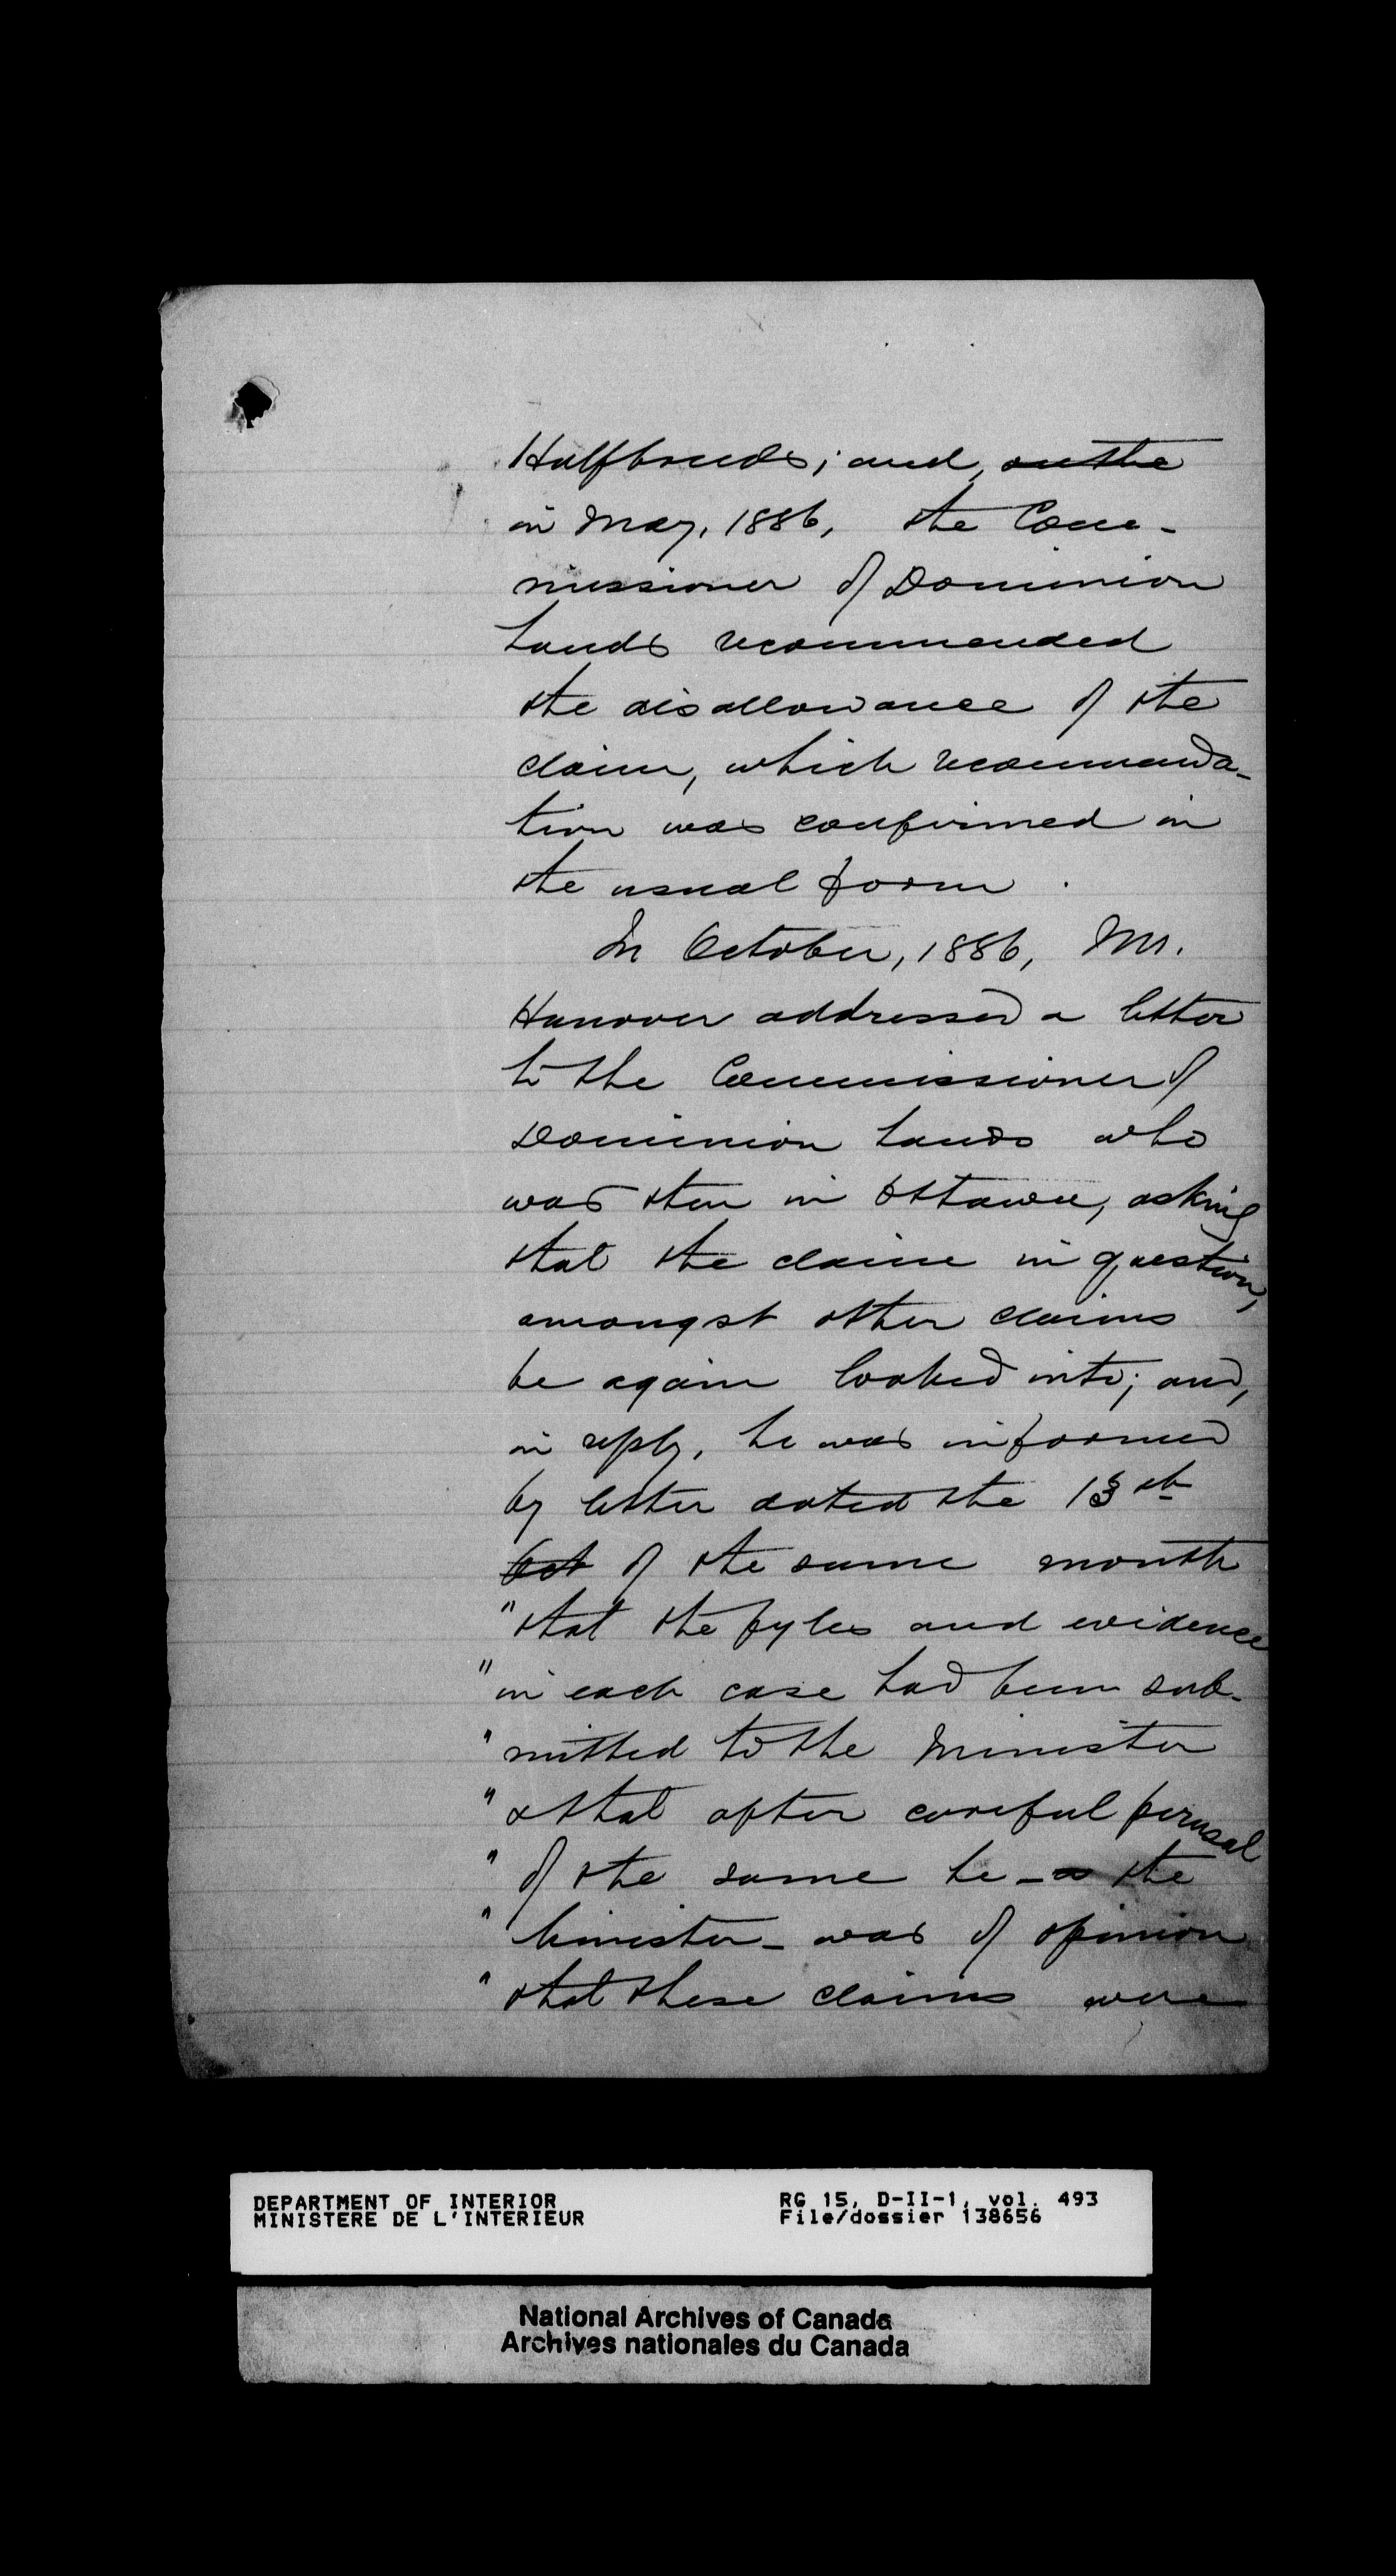 Halfbreeds; and, on the
in May, 1886, the Com-
missioner of Dominion
Lands recommended
the disallowance of the
claim, which recommenda-
tion was confirmed in
the usual form.
In October, 1886, Mr.
Hanover addressed a letter
to the Commissioner of
Dominion Lands who
was then in Ottawa, asking
that the claim in question,
amongst other claims
be again looked into; and,
in reply, he was informed
by letter dated the 13th
Oct of the same month
"that the fyles and evidence
"in each case had been sub-
"mitted to the Minister
"& that after careful perusal
"of the same he - the
"Minister - was of opinion
"that these claims were
DEPARTMENT OF INTERIOR
MINISTERE DE L'INTERIEUR
RG 15, D-II-1, vol. 493
File/dossier 138656
National Archives of Canada
Archives nationales du Canada